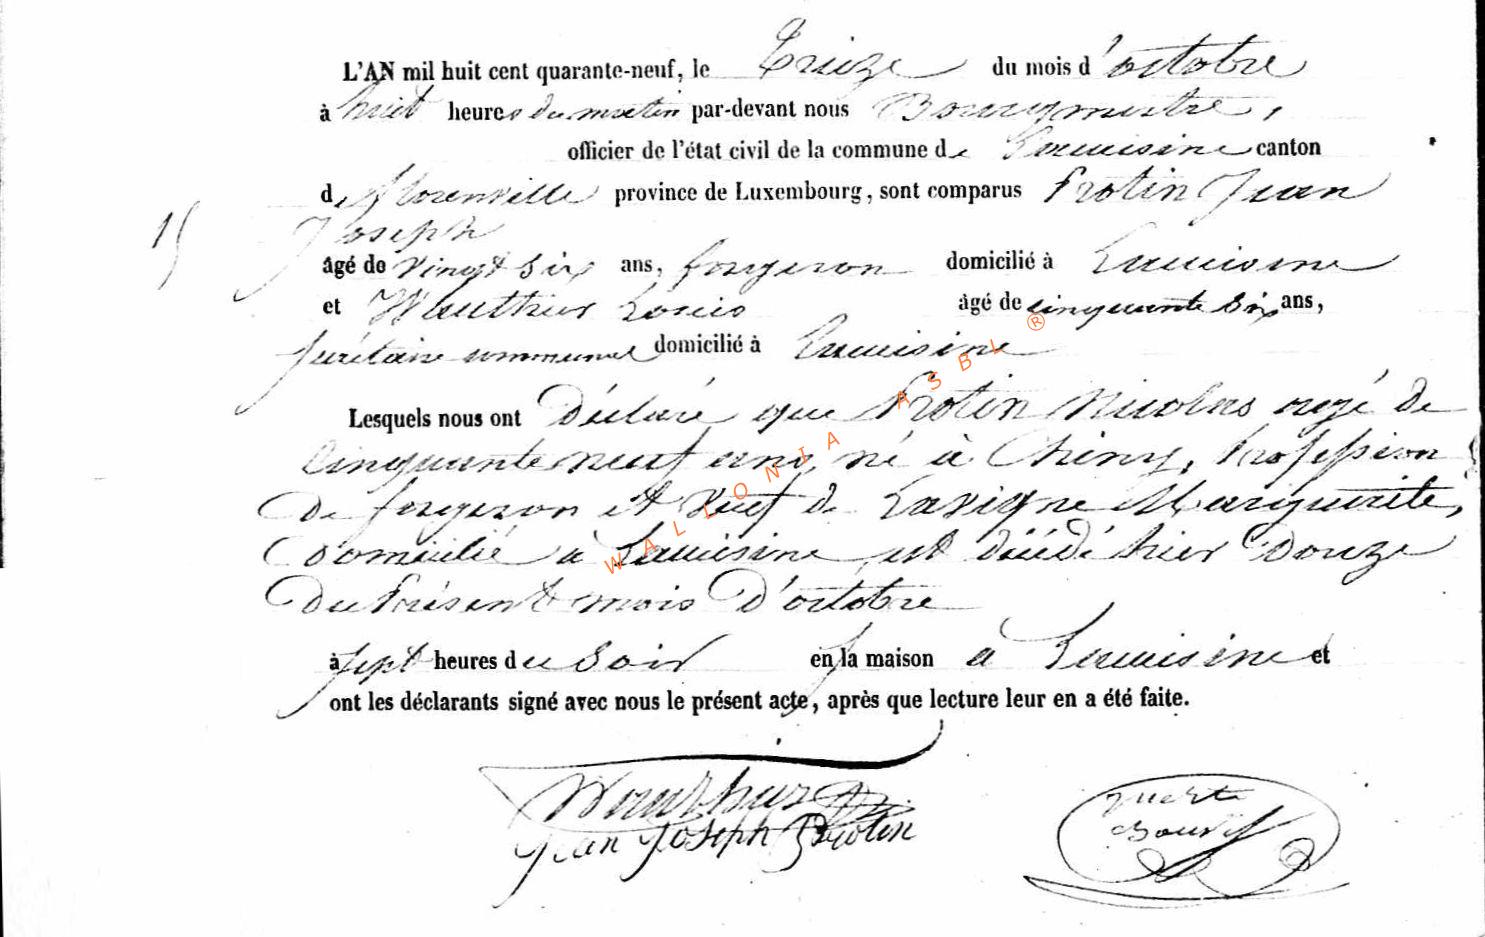 L'AN mil huit cent quarante-neuf, le Treize du mois d'octobre
à huit heures du matin par-devant nous Bourgmestre,
officier de l'état civil de la commune de Lacuisine canton
de florenville province de Luxembourg, sont comparus Protin Jean
15
Joseph
âgé de vingt six ans, forgeron domicilié à Lacuisine
et Wauthier Louis âgé de cinquante six ans,
secrétaire communal domicilié à Lacuisine
Lesquels nous ont Déclaré que Protin Nicolas agé de
Cinquante neuf ans, né à Chiny, Profession
de forgeron et Veuf de Lavigne Marguerite,
Domicilié à Lacuisine est décédé hier Douze
Du Présent mois D'octobre
à sept heures du Soir en la maison a Lacuisine et
ont les déclarants signé avec nous le présent acte, après que lecture leur en a été faite.
Jean Joseph Protin
WALLONIA ASBL ®